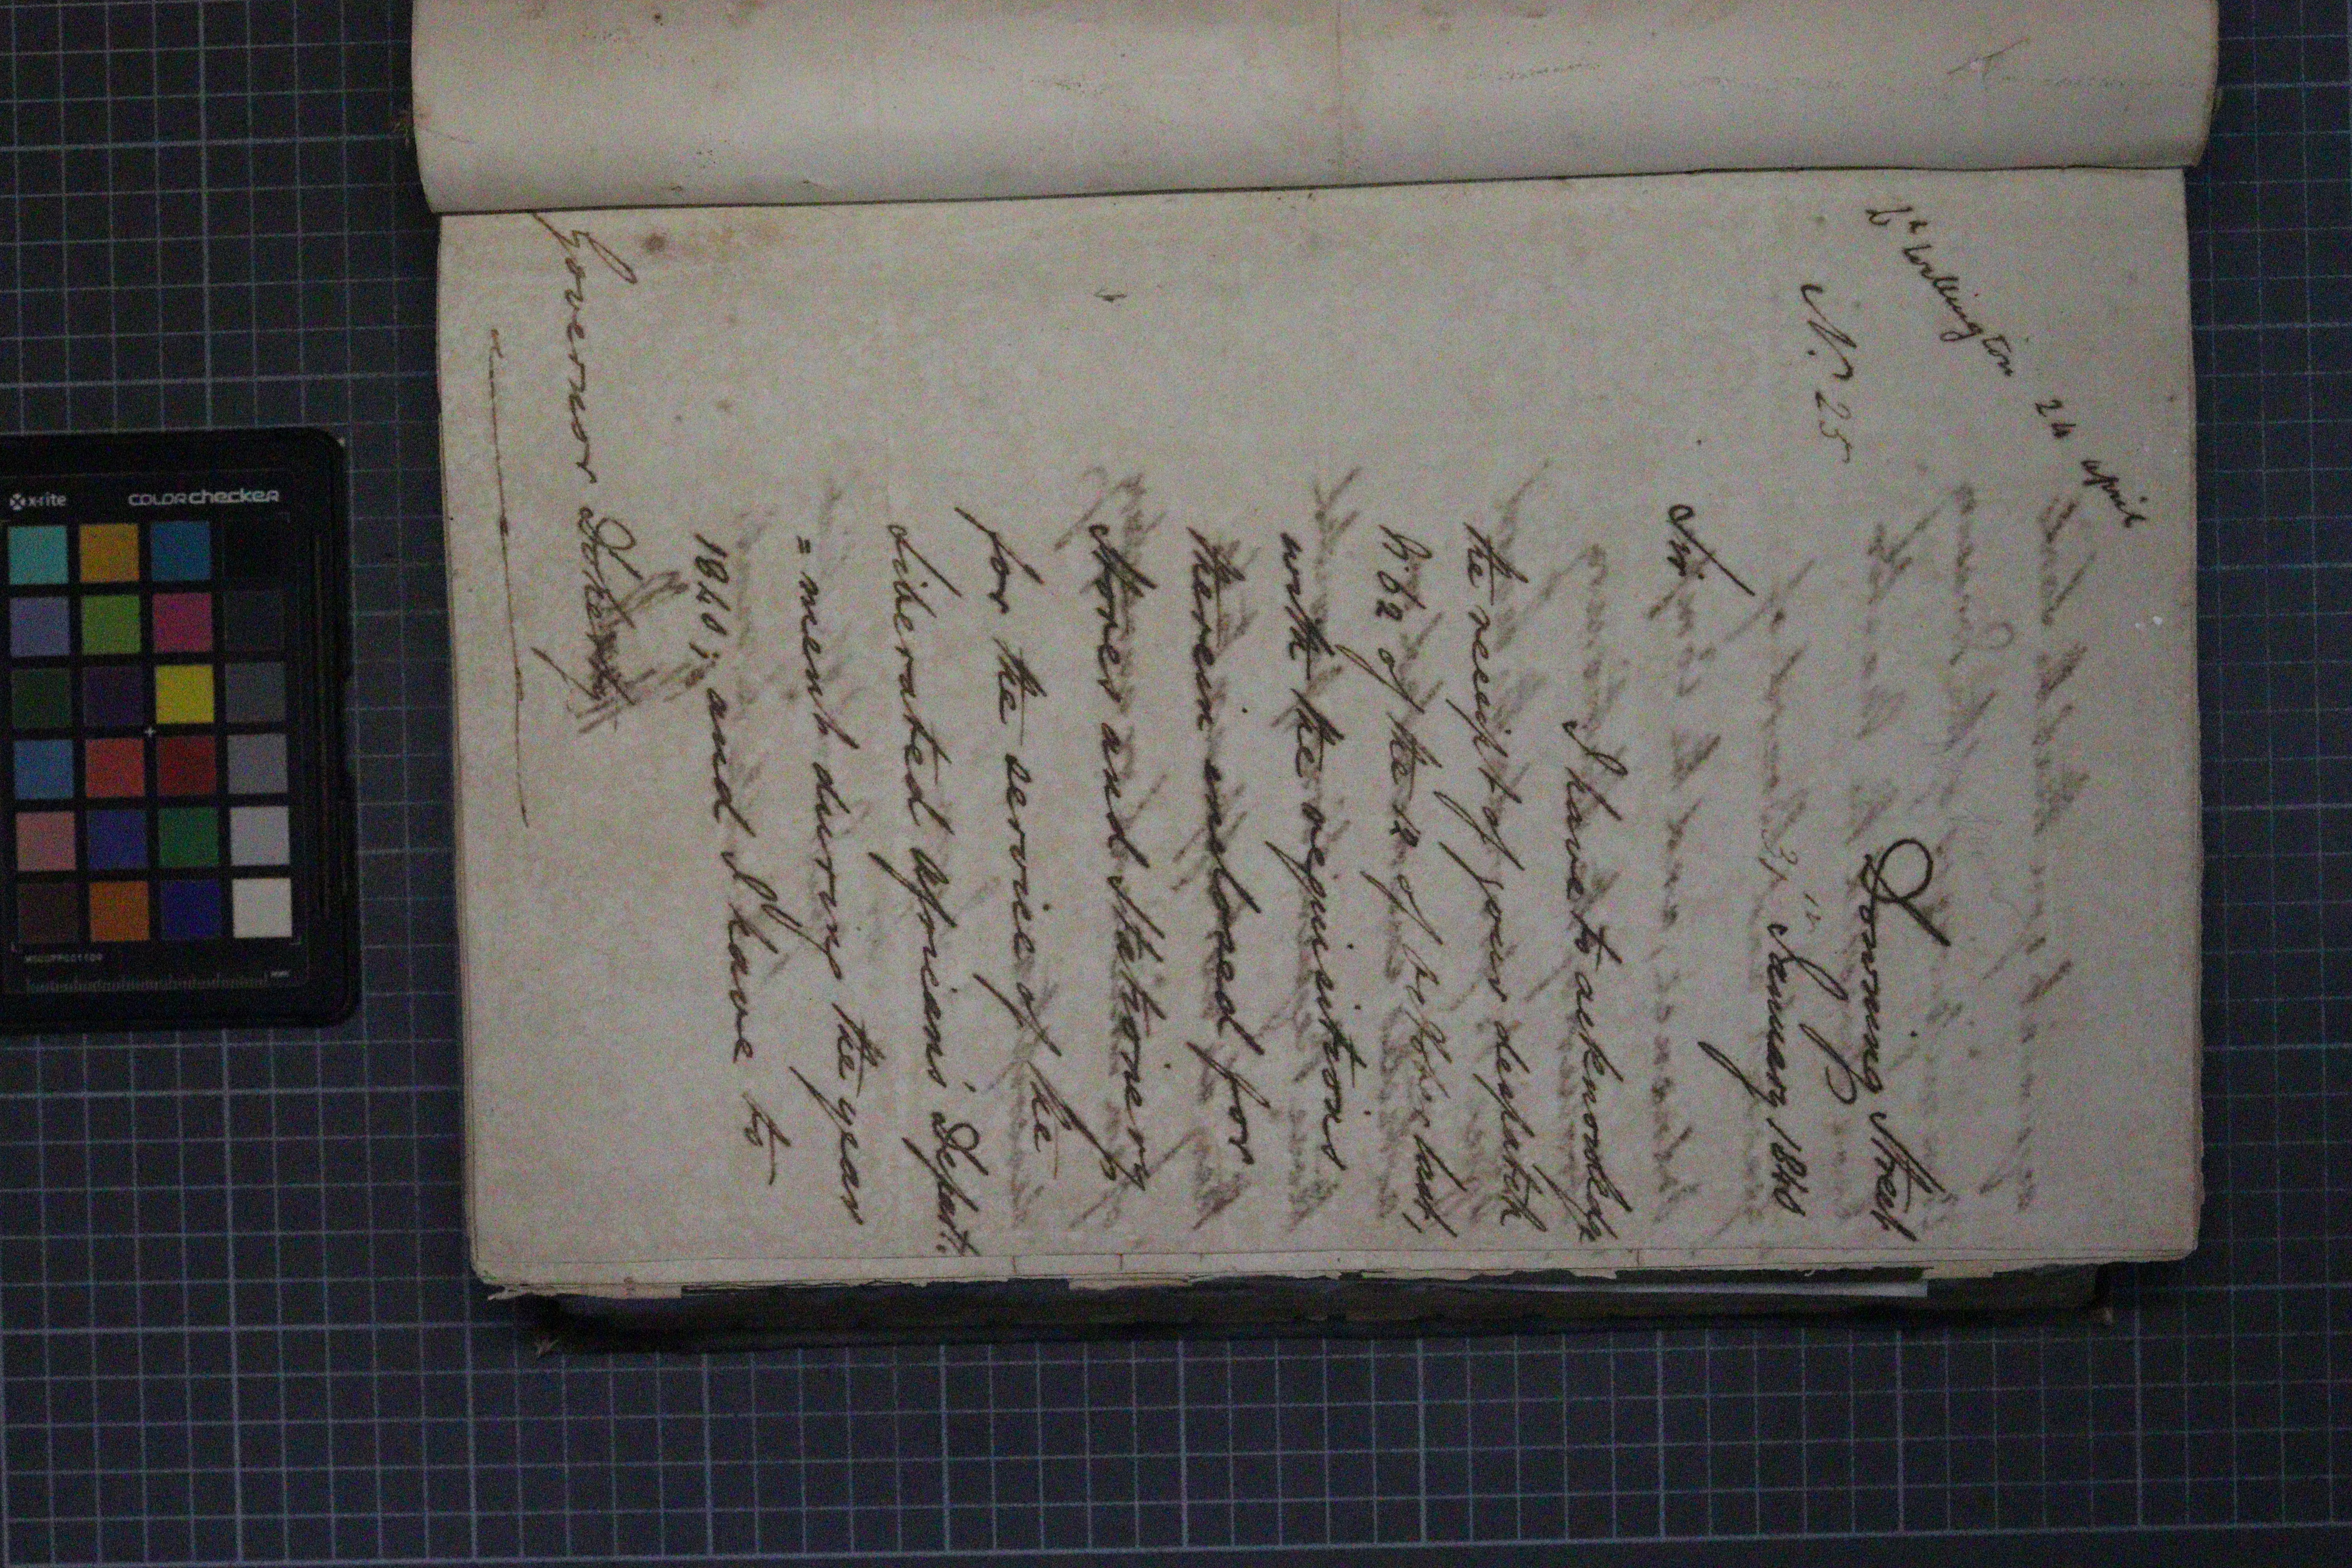 Wellington 24 april
No. 25
Downing Street
January 1840
Sir,
I have to acknowledge
the receipt of your despatch
No. 62 of the 2 of last,
with the requisitions
therein inclosed for
Stores and Stationery
for the service of the
Liberated Africans' Depart.
=ment during the year
1840; and I have to
Governor Doherty
x-rite
COLORchecker